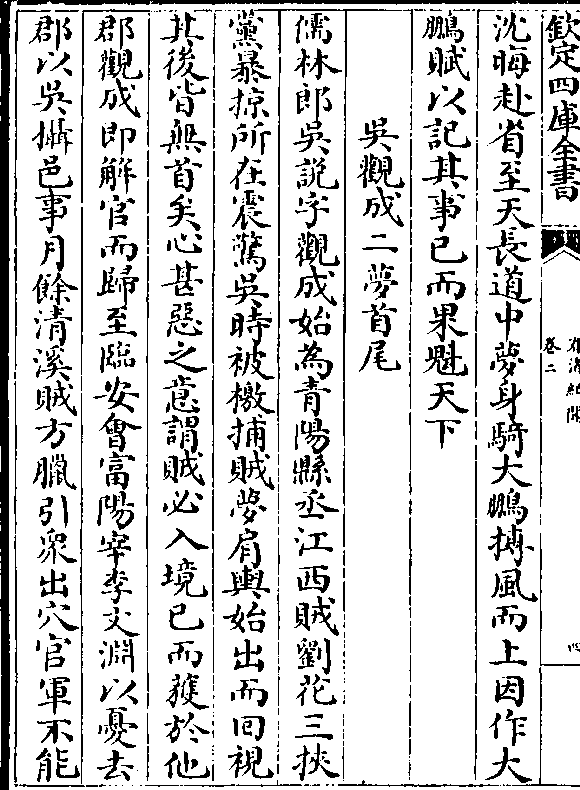 欽定四庫全書
春渚紀聞
卷二
四
沈晦赴省至天長道中夢身騎大鵬摶風而上因作大
鵬賦以記其事已而果魁天下
吳觀成二夢首尾
儒林郎吳説字觀成始為青陽縣丞江西賊劉花三挾
黨暴掠所在震驚吳時被檄捕賊夢肩輿始出而回視
其後皆無首矣心甚惡之意謂賊必入境已而獲於他
郡觀成即解官而歸至臨安會富陽宰李文淵以憂去
郡以吳攝邑事月餘清溪賊方臘引衆出穴官軍不能